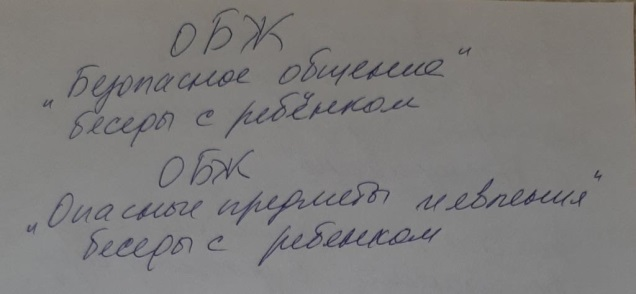 ОБЖ
"Безопасное общение"
беседы с ребёнком
ОБЖ
"Опасные предметы и явления"
беседы с ребенком